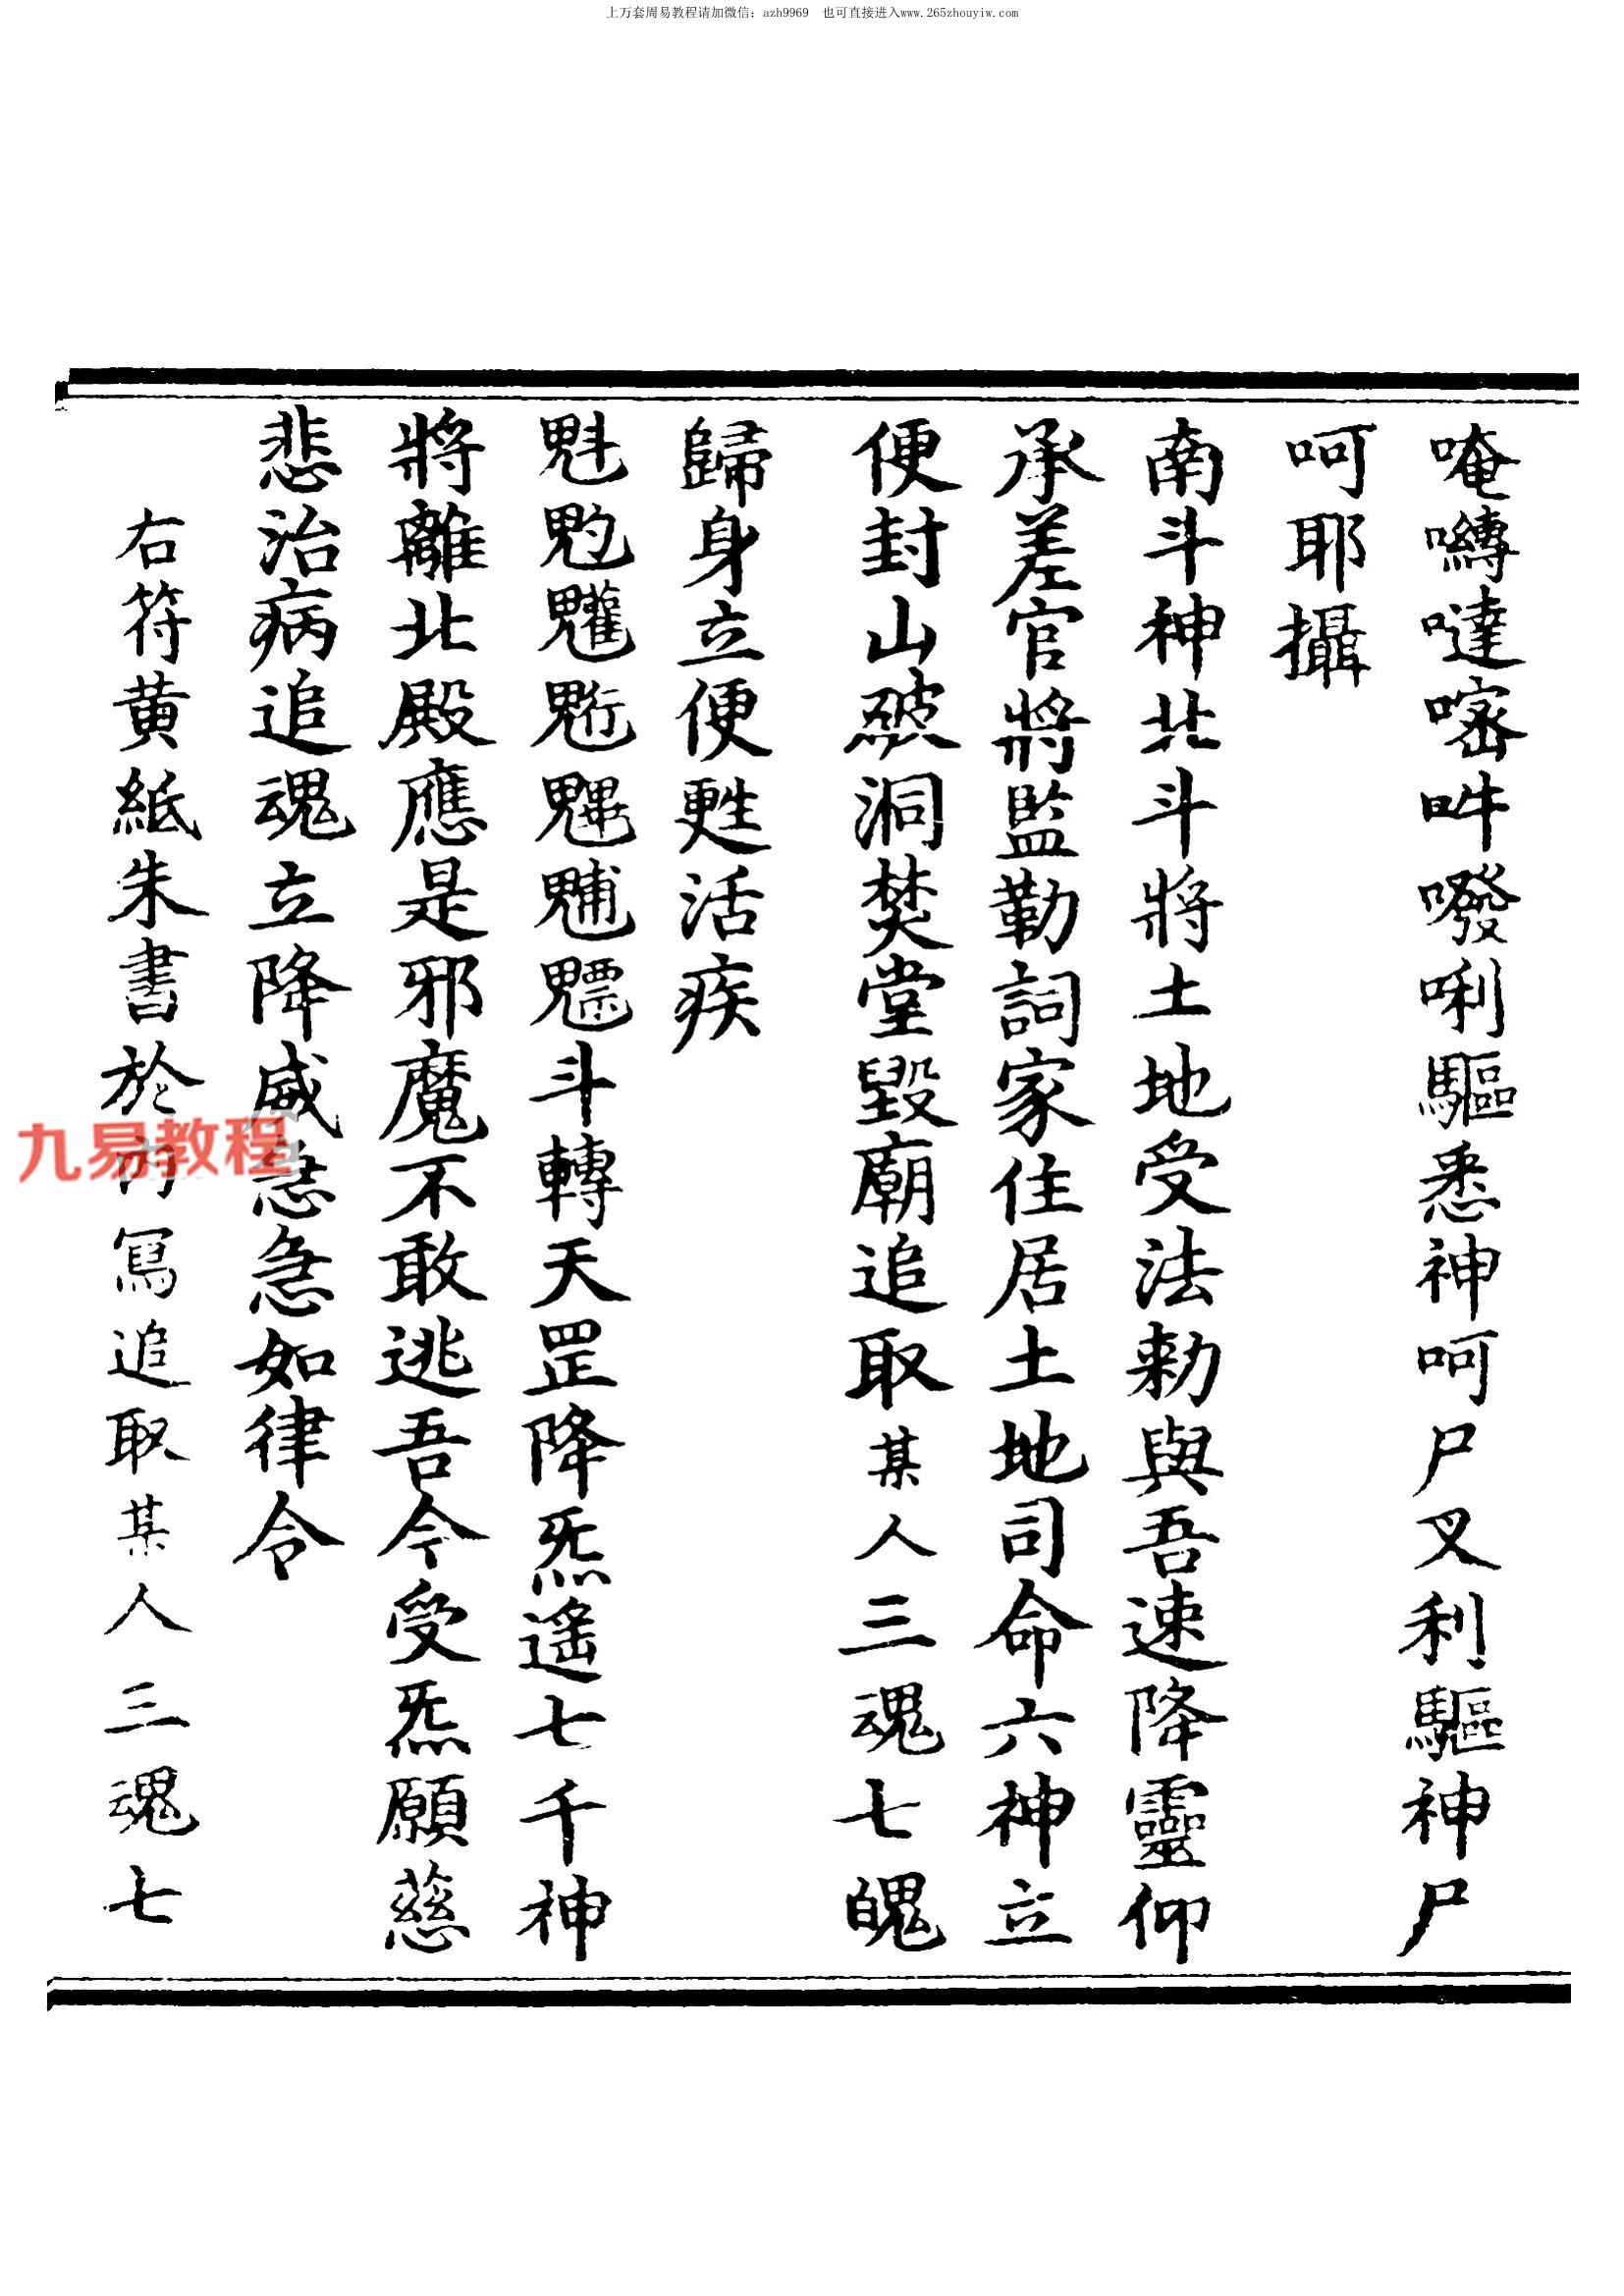 上万套周易教程请加微信：azh9969 也可直接进入www.265zhouyiw.com
唵囀噠㗭吽㗶唎驅悉神呵尸叉利驅神尸
呵耶攝
南斗神北斗將土地受法勅與吾速降靈仰
承差官將監勒詞家住居土地司命六神立
便封山破洞焚堂毀廟追取某人三魂七魄
歸身立便甦活疾
魁魀魋魒斗轉天罡降炁遙七千神
將離北殿應是邪魔不敢逃吾今受炁願慈
悲治病追魂立降威急急如律令
右符黄紙朱書於内寫追取某人三魂七
九易教程